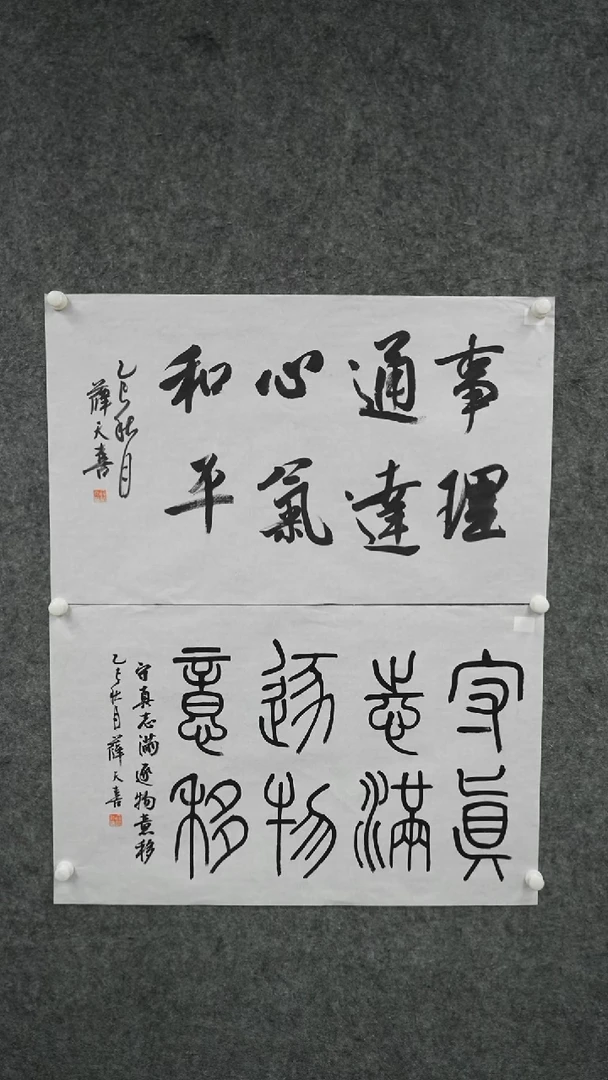 事理
通達
心氣
和平
乙巳秋月
薛天喜
守真
志滿
逐物
意移
守真志滿逐物意移
乙巳秋月薛天喜